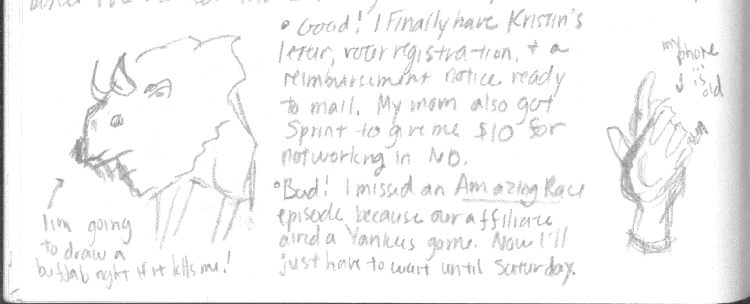 • Good! I Finally have Kristin's
letter, voter registration, + a
reimbursement notice ready
to mail. My mom also got
Sprint to give me $10 for
not working in ND.
• Bad! I missed an Amazing Race
episode because our affiliate
aired a Yankees game. Now I'll
just have to wait until Saturday.
I'm going
to draw a
buffalo right if it kills me!
my
phone
is
old